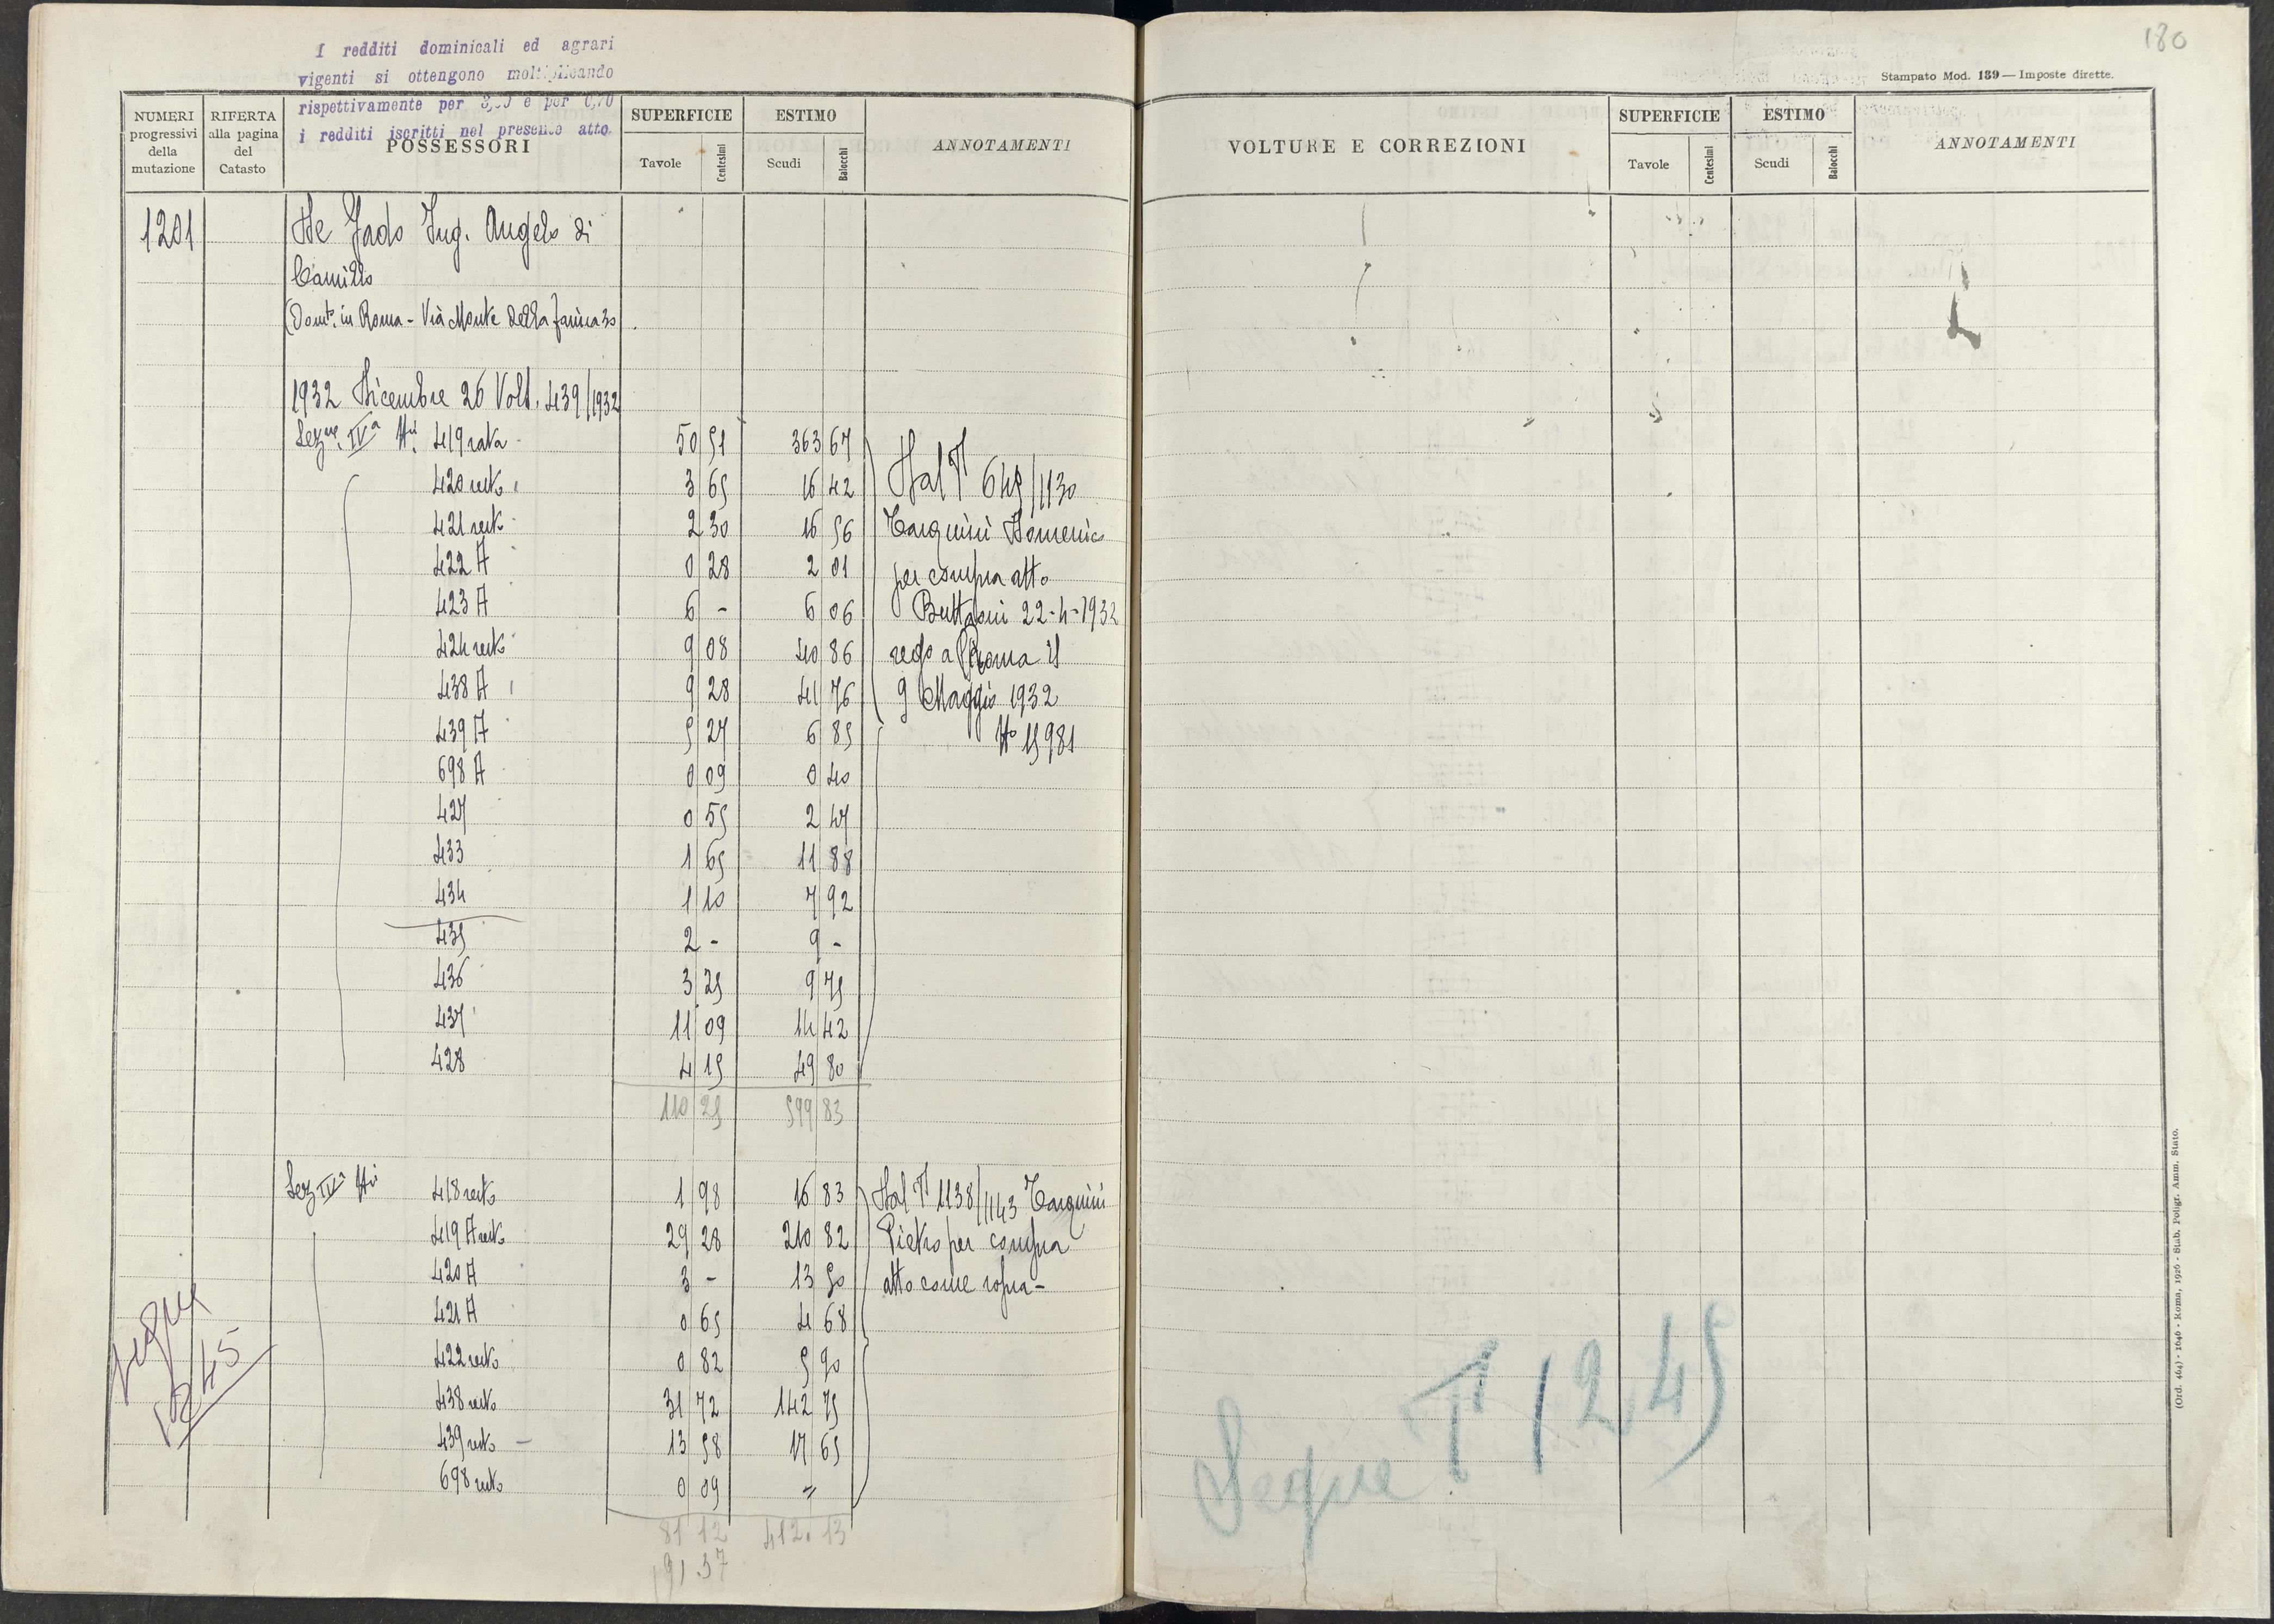 180
I redditi dominicali ed agrari
vigenti si ottengono moltiplicando
rispettivamente per e per 0,70
i redditi iscritti nel presente atto.
Stampato Mod. 139 — Imposte dirette.
NUMERI progressivi della mutazione
RIFERTA alla pagina del Catasto
POSSESSORI
SUPERFICIE
Tavole Centesimi
ESTIMO
Scudi Baiocchi
ANNOTAMENTI
VOLTURE E CORREZIONI
SUPERFICIE
Tavole Centesimi
ESTIMO
Scudi Baiocchi
ANNOTAMENTI
1201 De Ing. Angelo di
Camillo
Domto. in Roma - Via Monte della Farina 30
1932 Dicembre 26 Volt. 439/1932
Sezne. IVa Ni. 419 rata 50 51 363 67
420 resto 3 65 16 42 Dal P 648/1130
421 resto 2 30 16 56 Tarquini Domenico
422 A 0 28 2 01 per compra atto
423 A 6 - 6 06 Buttaoni 22-4-1932
424 resto 9 08 40 86 rego a Roma il
438 A 9 28 41 76 9 Maggio 1932
439 A 5 27 6 85 No 15981
698 A 0 09 0 40
427 0 55 2 47
433 1 65 11 88
434 1 10 7 92
435 2 - 9 -
436 3 25 9 75
437 11 09 14 42
428 4 15 49 80
110 25 599 83
Sez IVa Ni 418 resto 1 98 16 83 Dal P 1138/1143 Tarquini
419 A resto 29 28 210 82 Pietro per compra
420 A 3 - 13 50 atto come sopra -
421 A 0 65 4 68
422 resto 0 82 5 90
438 resto 31 72 142 75
439 resto - 13 58 17 65
698 resto 0 09 "
81 12 412. 13
191.37
segue
1245
Segue P 1245
(Ord. 464) - 1646 - Roma, 1926 - Stab. Poligr. Amm. Stato.